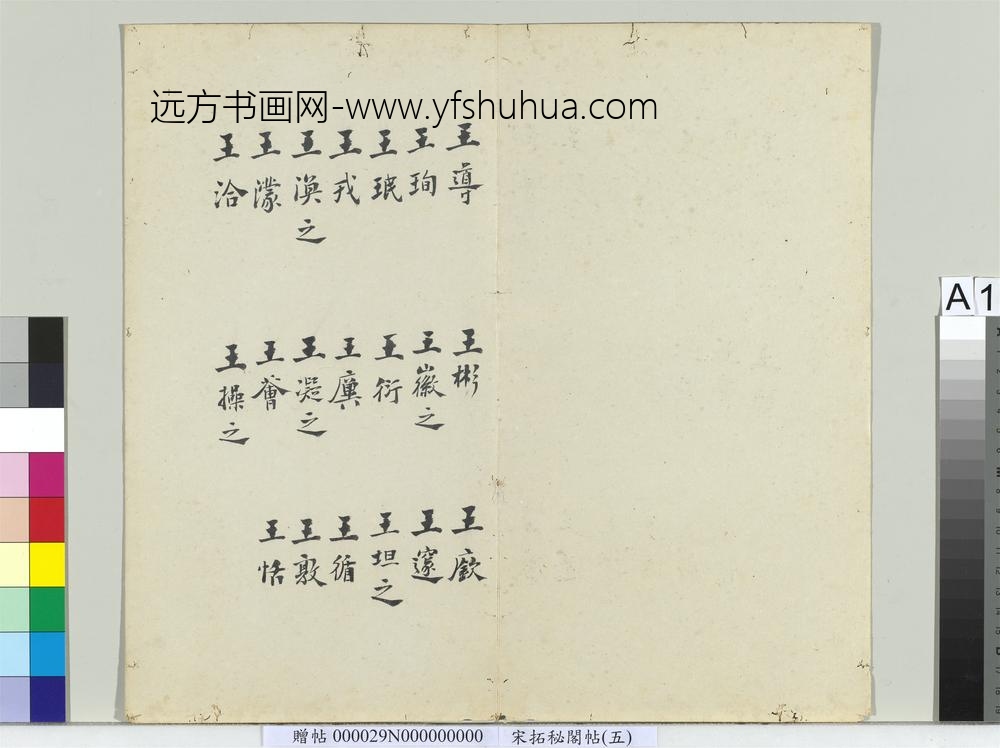 远方书画网-www.yfshuhua.com
王導
王珣
王珉
王戎
王渙之
王濛
王洽
王彬
王徽之
王衍
王廙
王凝之
王薈
王操之
王廞
王邃
王坦之
王循
王敦
王恬
A 1
贈帖 000029N000000000 宋拓秘閣帖(五)